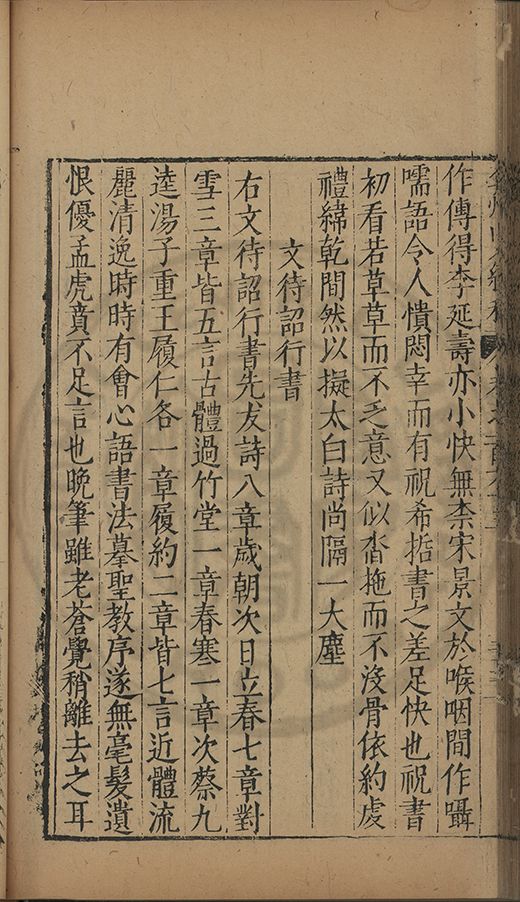 作傳得李延壽亦小快無柰宋景文於喉咽間作躡
嚅語令人憒悶幸而有祝希哲書之差足快也祝書
初看若草草而不乏意又似沓拖而不沒骨依約虔
禮緯乾間然以擬太白詩尚隔一大塵
文待詔行書
右文待詔行書先友詩八章歲朝次日立春七章對
雪三章皆五言古體過竹堂一章春寒一章次蔡九
逵湯子重王履仁各一章履約二章皆七言近體流
麗清逸時時有會心語書法摹聖教序遂無毫髮遺
恨優孟虎賁不足言也晚筆雖老蒼覺稍離去之耳